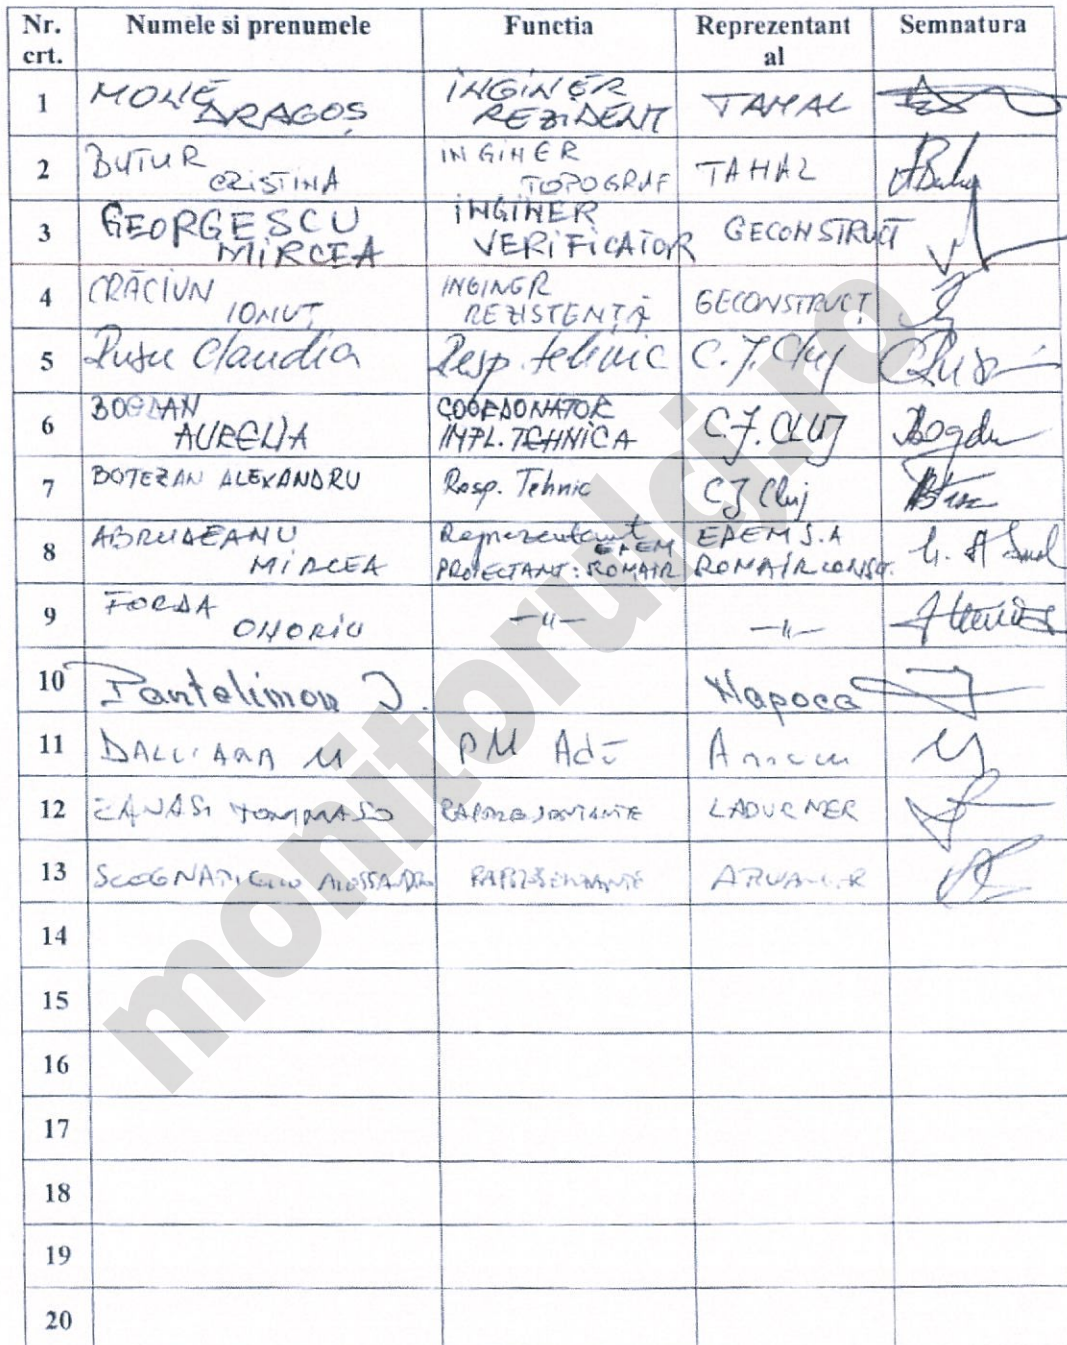 Nr. crt. Numele si prenumele Functia Reprezentant al Semnatura
1 MONE DRAGOȘ INGINER REZIDENT TAHAL
2 BUTUR CRISTINA INGINER TOPOGRAF TAHAL
3 GEORGESCU MIRCEA INGINER VERIFICATOR GECONSTRUCT
4 CRĂCIUN IONUȚ INGINER REZISTENȚĂ GECONSTRUCT
5 Rusu Claudia Resp. tehnic C.J. Cluj
6 BOGDAN AURELIA COORDONATOR IMPL. TEHNICA C.J. CLUJ Bogdan
7 BOTEZAN ALEXANDRU Resp. Tehnic CJ Cluj
8 ABRUDEANU MIRCEA Reprezentant EPEM PROIECTANT: ROMAIR EPEM S.A ROMAIR CONSULT.
9 FORDA ONORIU —11— —11—
10 Pantelimon Napoca
11 PM
12 ZANASI TOMMASO LADURNER
13 ALESSANDRO
14
15
16
17
18
19
20
monitorulcj.ro